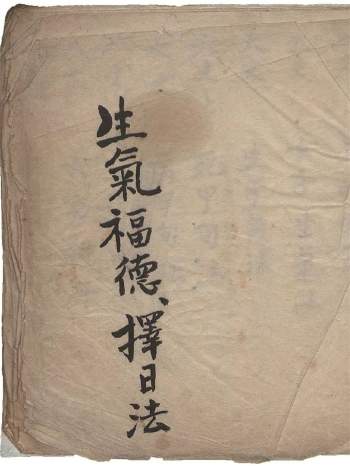 生氣福德、擇日法